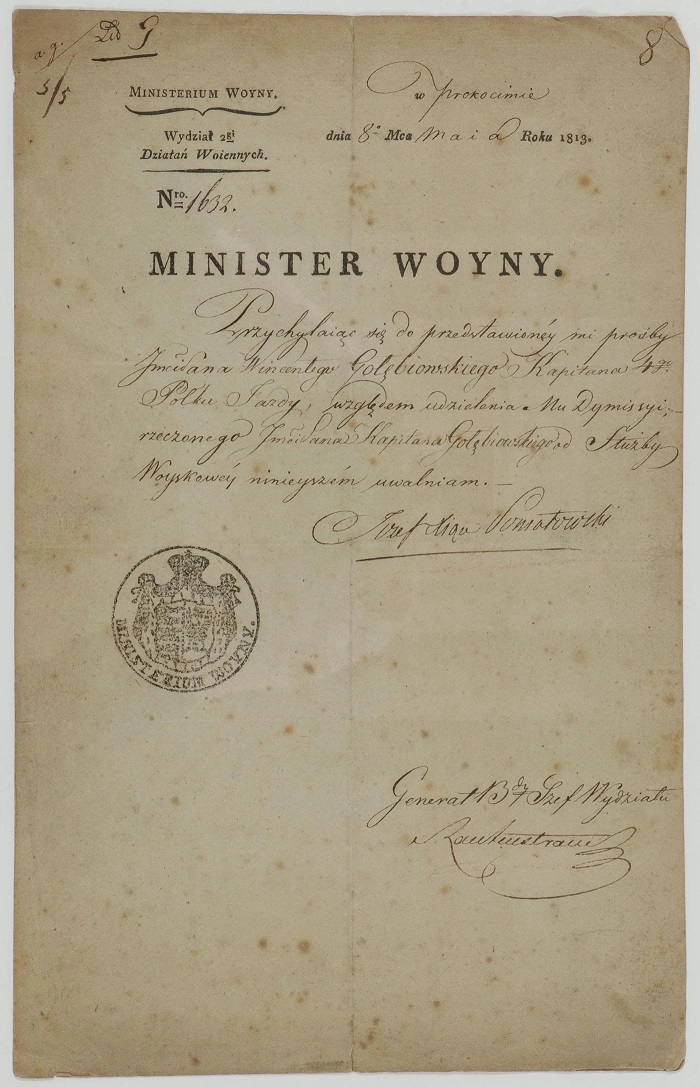 Do 9
8
5/5
MINISTERIUM WOYNY.
w Prokocimie
Wydział 2gi
dnia 8º Mca Maia Roku 1813.
Działań Woiennych.
Nro. 1632.
MINISTER WOYNY.
Przychylaiąc się do przedstawionéy mi prośby
JmciPana Wincentego Gołębiowskiego Kapitana 4go
Pólku Jazdy, względem udzielenia Mu Dymissyi,
rzeczonego JmciPana Kapitana Gołębiowskiego od Służby
Woyskowéy ninieyszém uwalniam. —
Jozef Xiąże Poniatowski
MINISTERIUM WOYNY.
Generał Bdy Szef Wydziału
Rautenstrauch